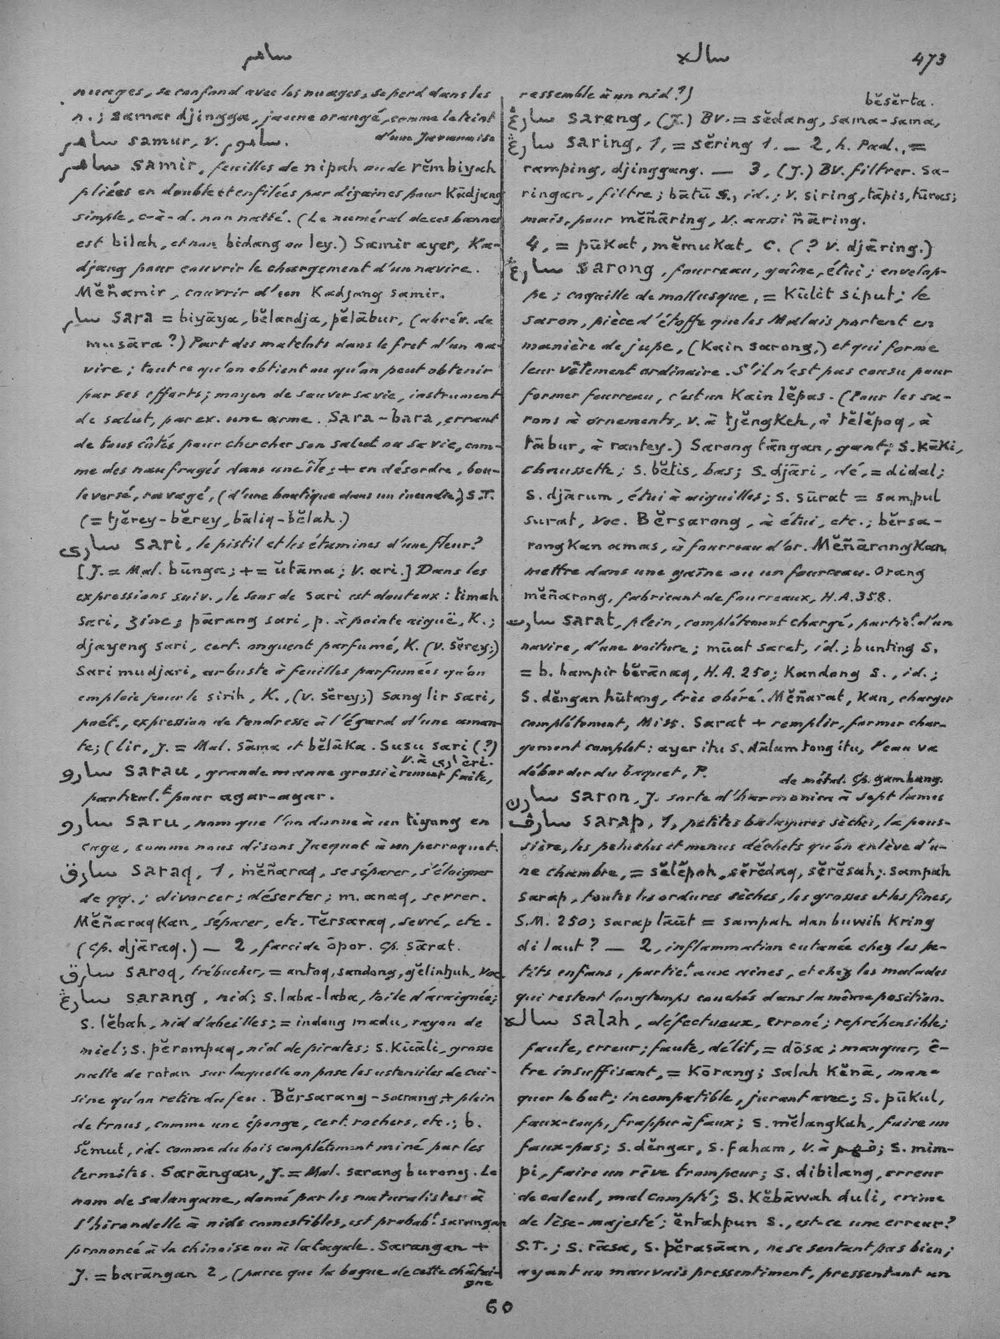 ساهر
سالـه
473
nuages, se confond avec les nuages, se perd dans les
n.; samar djingga, jaune orangé, comme le teint
d'un Javanaise
ساهر samur, v. ساهور.
ساهر samir, feuilles de nipah ou de rĕmbiyah
pliées en double et enfilées par dizaines pour Kādjang
simple, c-à-d. non natté. (Le numéral de ces bannes
est bilah, et non bidang ou ley.) Samir ayer, Ka-
djang pour couvrir le chargement d'un navire.
Mĕñamir, couvrir d'un Kadjang samir.
سار sara = biyāya, bĕlandja, pĕlābur, (abrév. de
musāra?) Part des matelots dans le fret d'un na-
vire; tout ce qu'on obtient ou qu'on peut obtenir
par ses efforts; moyen de sauver sa vie, instrument
de salut, par ex. une arme. Sara-bara, errant
de tous côtés pour chercher son salut ou sa vie, com-
me des naufragés dans une île; + en désordre, bou-
leversé, ravagé, (d'une boutique dans un incendie) S.T.
(= tjĕrey-bĕrey, bāliq-bĕlah.)
ساري sari, le pistil et les étamines d'une fleur?
[J. = Mal. būnga; += ŭtāma; V. ari.] Dans les
expressions suiv., le sens de sari est douteux: timah
sari, zinc; pārang sari, p. à pointe aiguë, K.;
djayeng sari, cert. onguent parfumé, K. (v. sĕrey;)
Sari mudjari, arbuste à feuilles parfumées qu'on
emploie pour le sirih, K., (v. sĕrey;) Sang lir sari,
poét., expression de tendresse à l'égard d'une aman-
te; (lir, J. = Mal. sāma et bĕlāka. Susu sari (?)
v. à ارى èri.
سارو sarau, grande manne grossièrement faite,
particul.t pour agar-agar.
سارو saru, nom que l'on donne à un tiyong en
cage, comme nous disons Jacquot à un perroquet.
سارق saraq, 1, mĕñaraq, se séparer, s'éloigner
de qq.; divorcer; déserter; m. anaq, sevrer.
MĕñaraqKan, séparer, etc. Tĕrsaraq, sevré, etc.
(Cp. djāraq.) — 2, farcide ōpor. Cp. sārat.
سارق saroq, trébucher, = antoq, sandong, gĕlintjuh, Voc.
سارڠ sarang, nid; s. laba-laba, toile d'araignée;
s. lĕbah, nid d'abeilles; = indong madu, rayon de
miel; s. pĕrompaq, nid de pirates; s. Kicāli, grosse
natte de rotan sur laquelle on pose les ustensiles de cui-
sine qu'on retire du feu. Bĕrsarang-sarang + plein
de trous, comme une éponge, cert. rochers, etc.; b.
sĕmut, id. comme du bois complètement miné par les
termites. Sarāngan, J. = Mal. sarang burong. Le
nom de salangane, donné par les naturalistes à
l'hirondelle à nids comestibles, est probab.t sarangan
prononcé à la chinoise ou à la tagale. Sarangan +
J. = barāngan 2, (parce que la bogue de cette châtai-
gne
ressemble à un nid?)
bĕsĕrta.
سارڠ sareng, (J.) Bv. = sĕdang, sama-sama,
سارڠ saring, 1, = sĕring 1. — 2, h. Pad., =
ramping, djinggang. — 3, (J.) BV. filtrer. Sa-
ringan, filtre; bātū S., id.; v. siring, tāpis, tūras;
mais, pour mĕñāring, v. aussi ñāring.
4, = pūkat, mĕmukat, C. (? v. djāring.)
سارڠ sarong, fourreau, gaîne, étui; envelop-
pe; coquille de mollusque, = Kūlit siput; le
saron, pièce d'étoffe que les Malais portent en
manière de jupe, (Kain sarong,) et qui forme
leur vêtement ordinaire. S'il n'est pas cousu pour
former fourreau, c'est un Kain lĕpas. (Pour les sa-
rons à ornements, v. à tjĕngkeh, à tĕlĕpoq, à
tābur, à rantey.) Sarong tāngan, gant; S. Kāki,
chaussette; S. bĕtis, bas; S. djāri, dé, = didal;
s. djārum, étui à aiguilles; s. sūrat = sampul
surat, voc. Bĕrsarong, à étui, etc.; bĕrsa-
rongKan amas, à fourreau d'or. MĕñārongKan,
mettre dans une gaîne ou un fourreau. Orang
mĕñarong, fabricant de fourreaux, H.A. 358.
سارت sarat, plein, complètement chargé, partic.t d'un
navire, d'une voiture; mūat sarat, id.; bunting S.
= b. hampir bĕrānaq, H.A. 250; Kandong S., id.;
S. dĕngan hūtang, très obéré. Mĕñarat, Kan, charger
complètement, Miss. Sarat + remplir, former char-
gement complet: ayer itu s. dālam tong itu, l'eau va
déborder du baquet, P.
de métal. Cp. gambang.
سارن saron, J. sorte d'harmonica à sept lames
سارڤ sarap, 1, petites balayures sèches, la pous-
sière, les peluches et menus déchets qu'on enlève d'u-
ne chambre, = sĕlĕpoh, sĕrĕdaq, sĕrāsah; sampah
sarap, toutes les ordures sèches, les grosses et les fines,
S.M. 250; sarap lāūt = sampah dan buwih Kring
di laut? — 2, inflammation cutanée chez les pe-
tits enfants, partic.t aux aines, et chez les malades
qui restent longtemps couchés dans la même position.
سالـه salah, défectueux, erroné; répréhensible;
faute, erreur; faute, délit, = dōsa; manquer, ê-
tre insuffisant, = Kōrang; salah Kĕnā, man-
quer le but; incompatible, jurant avec; S. pūkul,
faux-coup, frapper à faux; S. mĕlangkah, faire un
faux-pas; s. dĕngar, s. faham, v. à فهم; s. mim-
pi, faire un rêve trompeur; s. dibilang, erreur
de calcul, mal compté; S. Kĕbāwah duli, crime
de lèse-majesté; ĕntahpun S., est-ce une erreur?
S.T.; S. rāsa, S. pĕrasāan, ne se sentant pas bien;
ayant un mauvais pressentiment, pressentant un
60